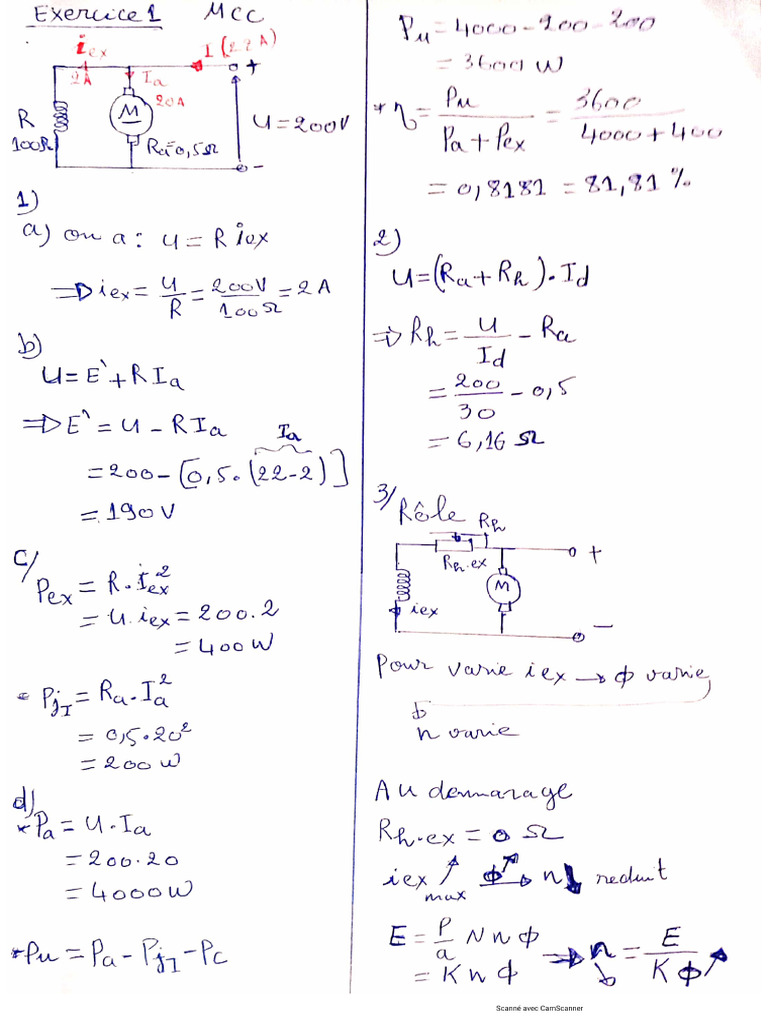 Exercice 1 MCC
iex
I (22A)
2A
Ia
+
20A
M
R
100Ω
U=200V
Ra=0,5Ω
-
1)
a) on a : U = R iex
⇒ iex = U/R = 200V/100Ω = 2 A
b)
U = E' + R Ia
⇒ E' = U - R Ia
Ia
= 200 - [0,5.(22-2)]
= 190 V
c/
Pex = R.Iex²
= U.iex = 200.2
= 400 W
- PjI = Ra.Ia²
= 0,5.20²
= 200 W
d)
*Pa = U.Ia
= 200.20
= 4000W
*Pu = Pa - PjI - Pc
Pu = 4000-200-200
= 3600 W
*η = Pu/(Pa+Pex) = 3600/(4000+400)
= 0,8181 = 81,81 %
2)
U=(Ra+Rh).Id
⇒ Rh = U/Id - Ra
= 200/30 - 0,5
= 6,16 Ω
3/
Rôle
Rh
+
Rh.ex
M
iex
-
Pour varie iex → ϕ varie
n varie
Au demarage
Rh.ex = 0 Ω
iex ↗ ϕ↗ → n↓ reduit
max
E = P/a N n ϕ ⇒ n = E/(K ϕ↗)
= K n ϕ
Scanné avec CamScanner